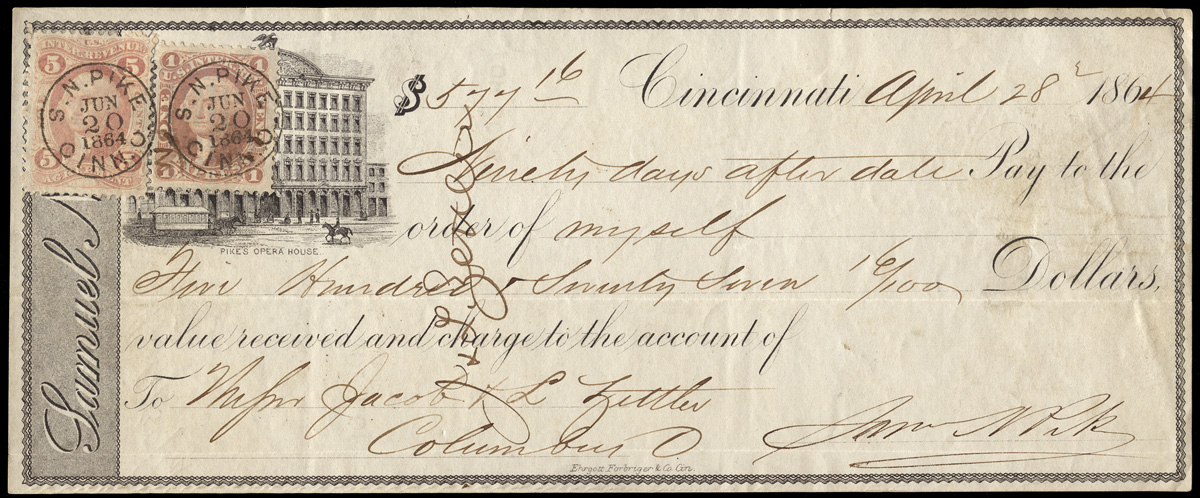 5 U.S. 5
INTER. REVENUE
S.N. PIKE
JUN
20
1864
CINNO
5 5
1 1
U.S. INTER. REVENUE
S.N. PIKE
JUN
20
1864
CINNO
1 1
PIKE'S OPERA HOUSE.
Samuel N
$ 577 16 Cincinnati April 28 1864
Ninety days after date Pay to the
order of myself
Five Hundred & Seventy Seven 16/100 Dollars,
value received and charge to the account of
To Messrs Jacob & L Zettler
Columbus O
Sam N Pike
Ehrgott, Forbriger & Co. Cin.